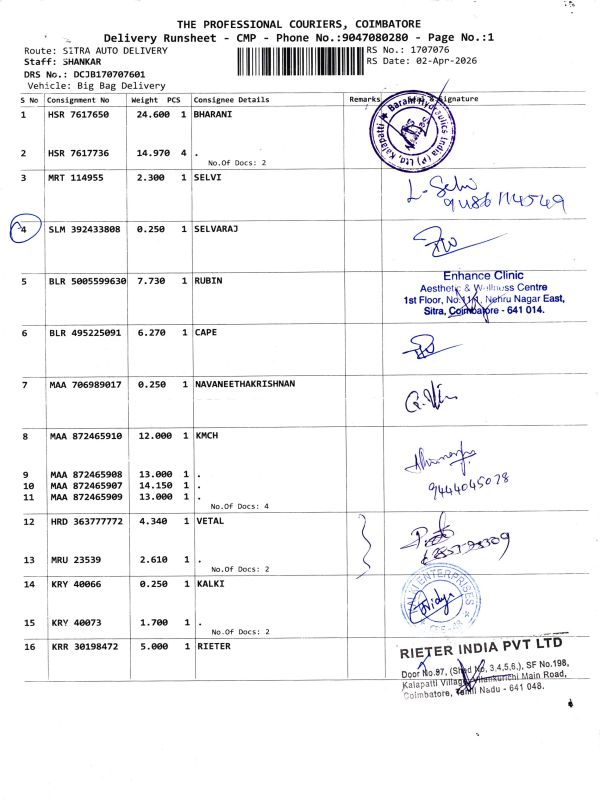 THE PROFESSIONAL COURIERS, COIMBATORE
Delivery Runsheet - CMP - Phone No.:9047080280 - Page No.:1
Route: SITRA AUTO DELIVERY RS No.: 1707076
Staff: SHANKAR RS Date: 02-Apr-2026
DRS No.: DCJB170707601
Vehicle: Big Bag Delivery
S No Consignment No Weight PCS Consignee Details Remarks Signature
1 HSR 7617650 24.600 1 BHARANI
Barani Hydraulics India (P) Ltd, Kalapatti
2 HSR 7617736 14.970 4 .
No.Of Docs: 2
3 MRT 114955 2.300 1 SELVI
L. Selvi
4 SLM 392433808 0.250 1 SELVARAJ
5 BLR 5005599630 7.730 1 RUBIN
Enhance Clinic
Aesthetic & Wellness Centre
1st Floor, No.11/1, Nehru Nagar East,
Sitra, Coimbatore - 641 014.
6 BLR 495225091 6.270 1 CAPE
7 MAA 706989017 0.250 1 NAVANEETHAKRISHNAN
8 MAA 872465910 12.000 1 KMCH
9 MAA 872465908 13.000 1 .
10 MAA 872465907 14.150 1 .
11 MAA 872465909 13.000 1 .
9444045078
No.Of Docs: 4
12 HRD 363777772 4.340 1 VETAL
13 MRU 23539 2.610 1 .
No.Of Docs: 2
14 KRY 40066 0.250 1 KALKI
ENTERPRISES
Vidya
15 KRY 40073 1.700 1 .
No.Of Docs: 2
16 KRR 30198472 5.000 1 RIETER
RIETER INDIA PVT LTD
Door No.97, (Shed No, 3,4,5,6,), SF No.198,
Kalapatti Village, Vilankurichi Main Road,
Coimbatore, Tamil Nadu - 641 048.